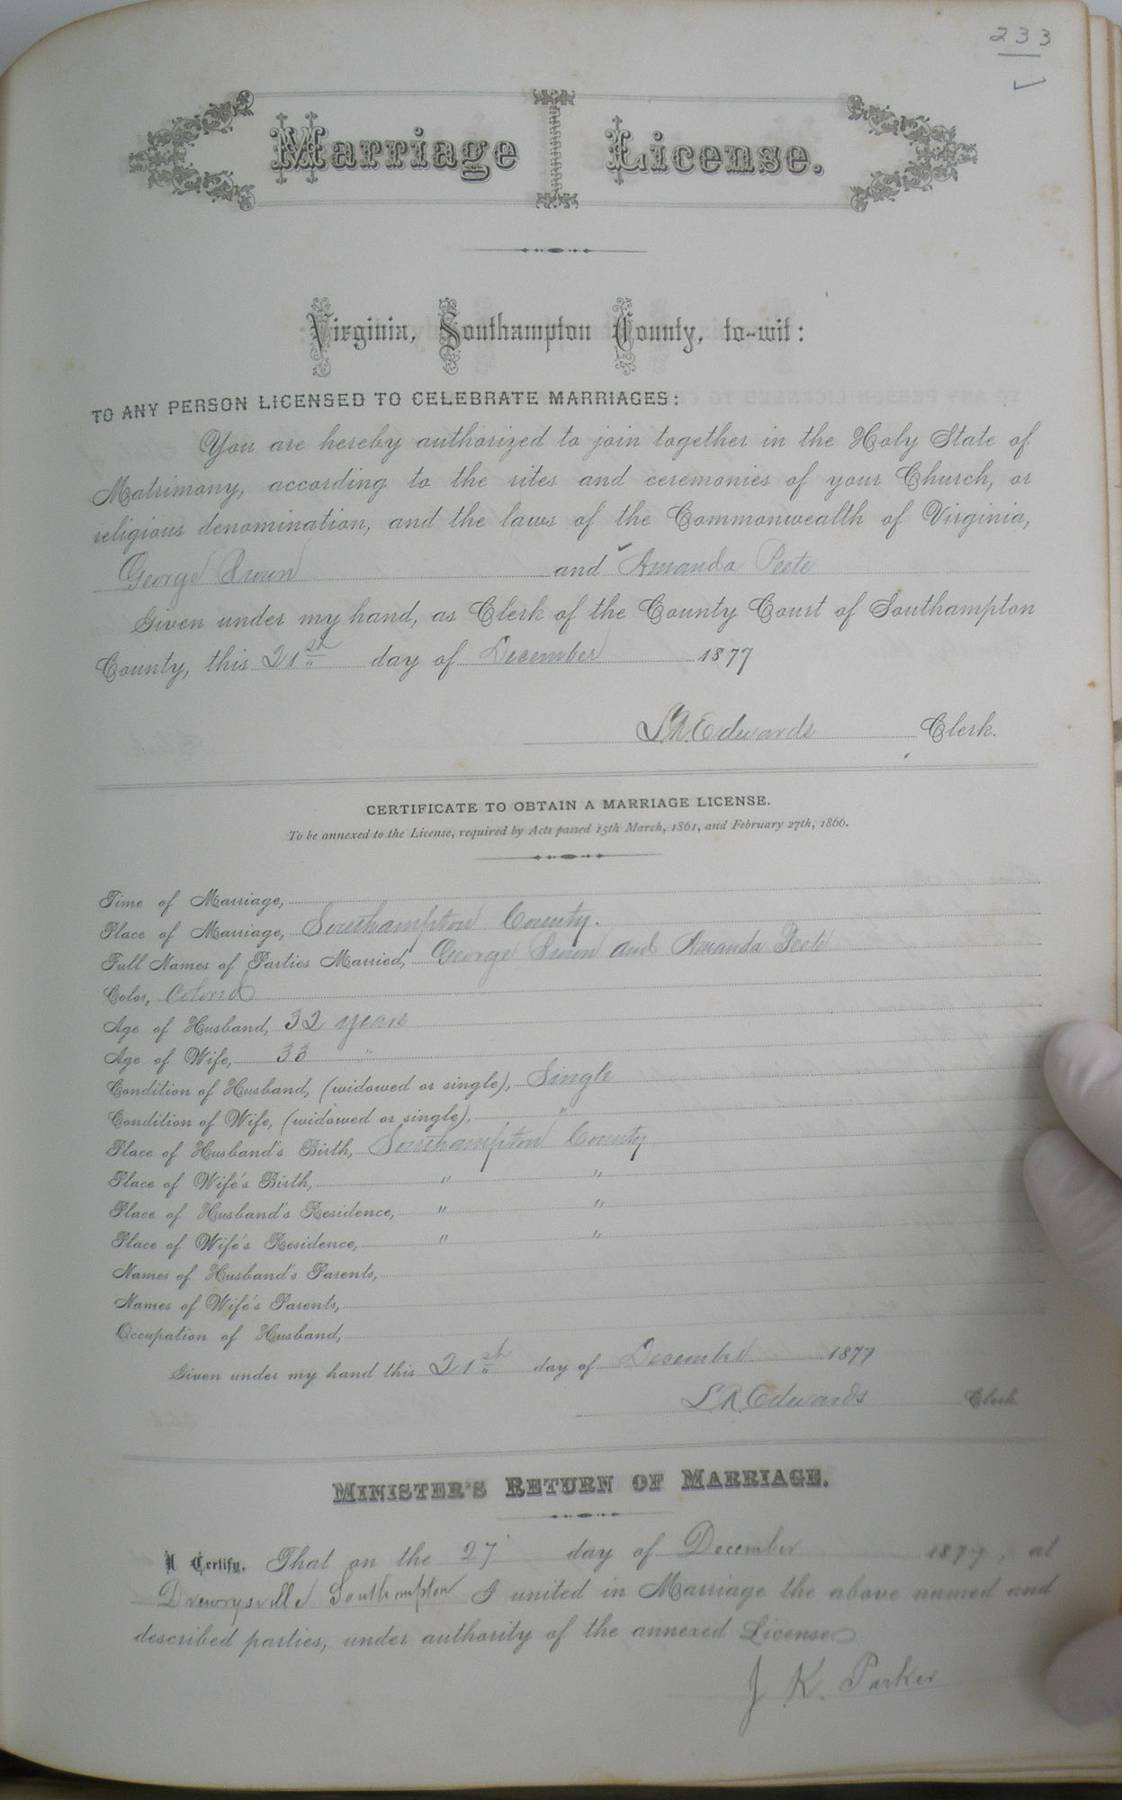 233
Marriage License.
Virginia, Southampton County, to-wit:
TO ANY PERSON LICENSED TO CELEBRATE MARRIAGES:
You are hereby authorized to join together in the Holy State of
Matrimony, according to the rites and ceremonies of your Church, or
religious denomination, and the laws of the Commonwealth of Virginia,
George Brown and Amanda Peete
Given under my hand, as Clerk of the County Court of Southampton
County, this 21st day of December 1877
L.R. Edwards Clerk.
CERTIFICATE TO OBTAIN A MARRIAGE LICENSE.
To be annexed to the License, required by Acts passed 15th March, 1861, and February 27th, 1866.
Time of Marriage,
Place of Marriage, Southampton County.
Full Names of Parties Married, George Brown and Amanda Peete
Color, Colored
Age of Husband, 32 years
Age of Wife, 33 "
Condition of Husband, (widowed or single), Single
Condition of Wife, (widowed or single), "
Place of Husband's Birth, Southampton County
Place of Wife's Birth, " "
Place of Husband's Residence, " "
Place of Wife's Residence, " "
Names of Husband's Parents,
Names of Wife's Parents,
Occupation of Husband,
Given under my hand this 21st day of December 1877
L.R. Edwards Clerk
MINISTER'S RETURN OF MARRIAGE.
I Certify, That on the 27 day of December 1877, at
Drewrysville Southampton I united in Marriage the above named and
described parties, under authority of the annexed License
J K. Parker